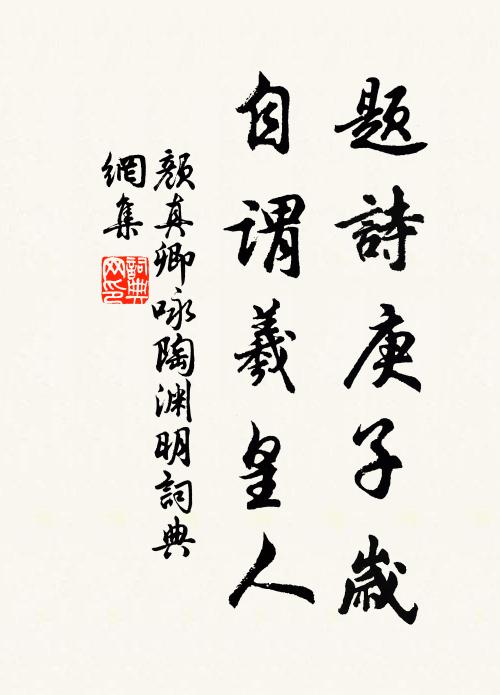 題詩庚子歲
自謂羲皇人
顏真卿咏陶渊明詞典
網集
詞典網印